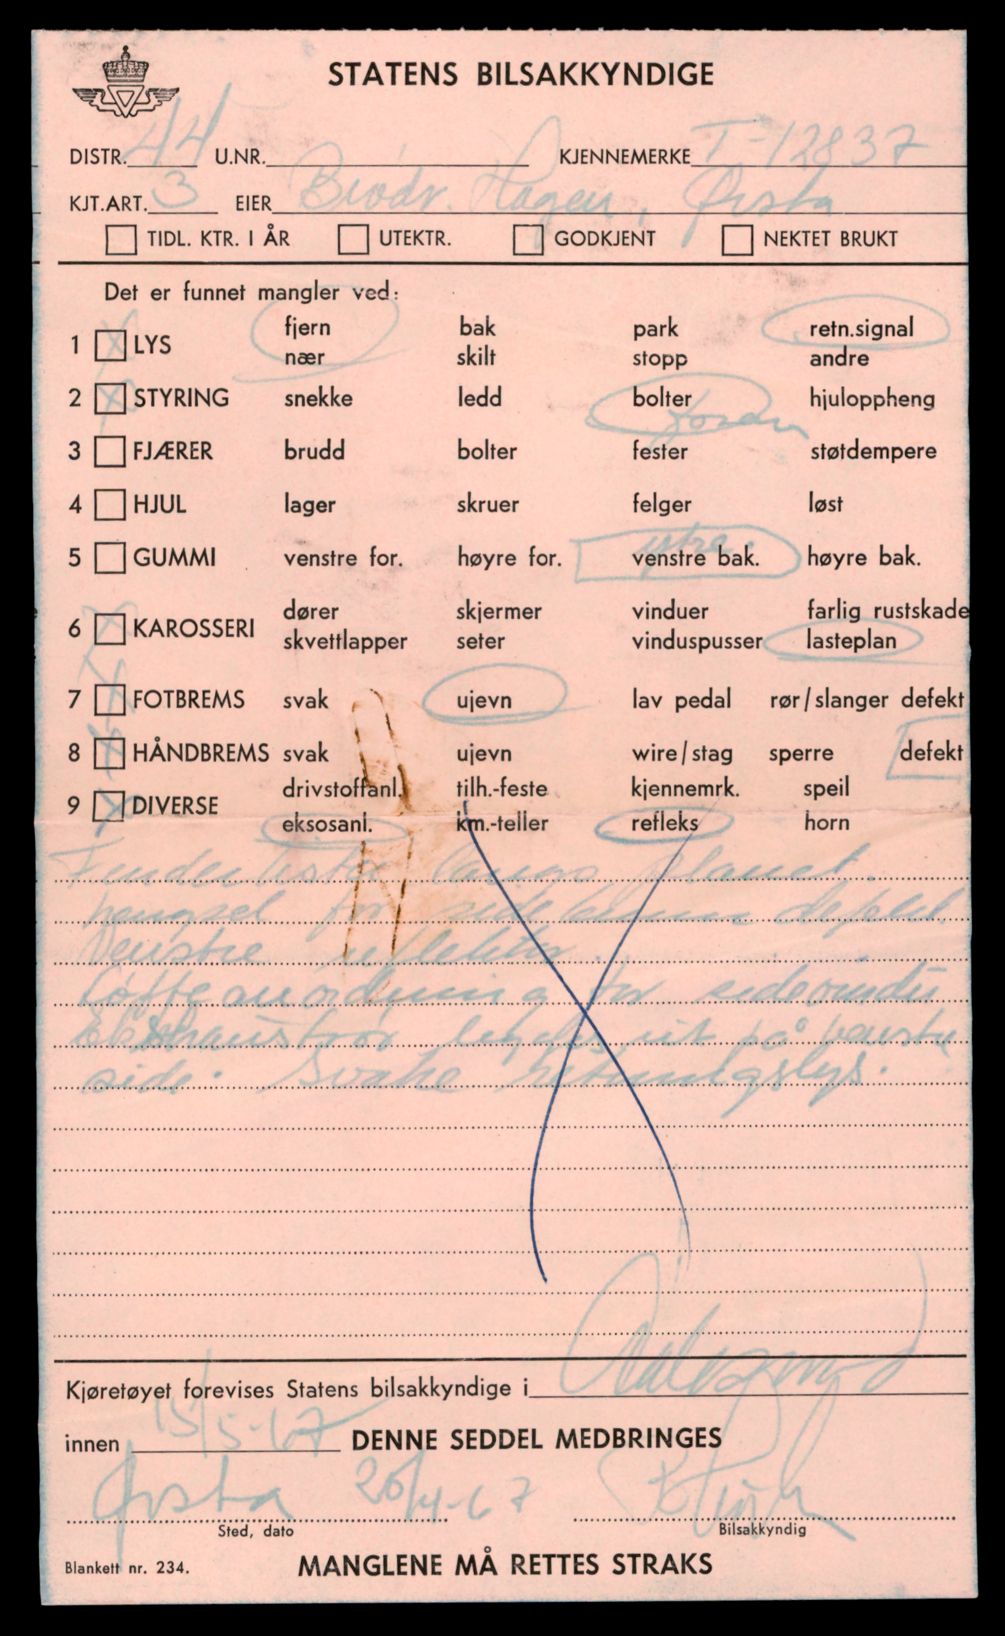 STATENS BILSAKKYNDIGE
DISTR. 44 U.NR. KJENNEMERKE T-12837
KJT.ART. 3 EIER Brødr. Hagen, Ørsta
TIDL. KTR. I ÅR UTEKTR. GODKJENT NEKTET BRUKT
Det er funnet mangler ved:
fjern bak park retn.signal
1 X LYS
nær skilt stopp andre
2 X STYRING snekke ledd bolter hjuloppheng
foran
3 FJÆRER brudd bolter fester støtdempere
4 HJUL lager skruer felger løst
ytre.
5 GUMMI venstre for. høyre for. venstre bak. høyre bak.
dører skjermer vinduer farlig rustskade
6 X KAROSSERI
skvettlapper seter vinduspusser lasteplan
7 X FOTBREMS svak ujevn lav pedal rør/slanger defekt
8 X HÅNDBREMS svak ujevn wire/stag sperre defekt
drivstoffanl. tilh.-feste kjennemrk. speil
9 X DIVERSE
eksosanl. km.-teller refleks horn
langs planet.
hengsel for defekt
Venstre reflektor
Løfteanordning for sidevindu
ut på venstre
side. Svake retningslys.
Kjøretøyet forevises Statens bilsakkyndige i
innen 15/5-67 DENNE SEDDEL MEDBRINGES
Ørsta 26/4-67
Sted, dato Bilsakkyndig
Blankett nr. 234. MANGLENE MÅ RETTES STRAKS